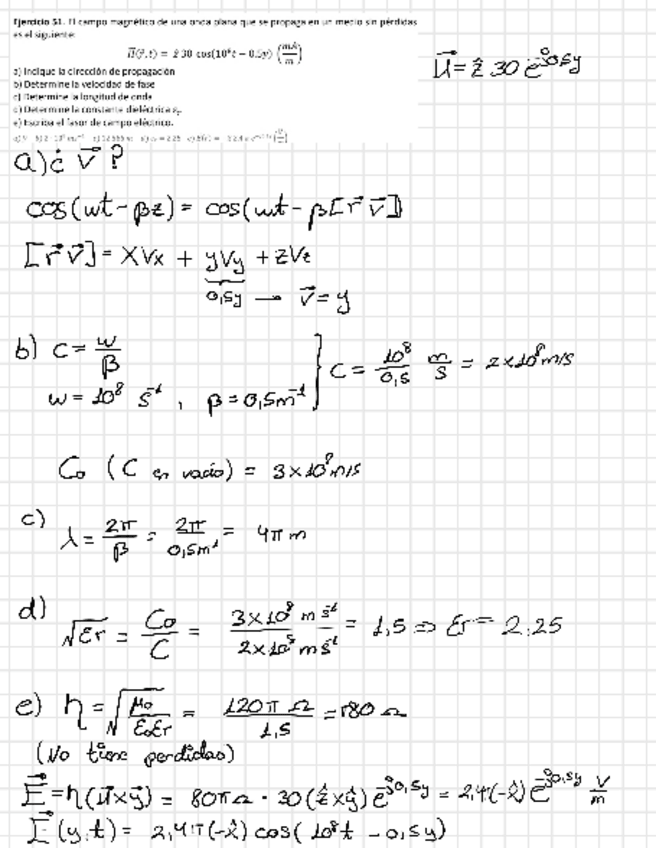 Ejercicio 51. El campo magnético de una onda plana que se propaga en un medio sin pérdidas
es el siguiente:
H⃗(r⃗,t) = ẑ 30 cos(10⁸t − 0.5y) (mA/m)
H⃗ = ẑ 30 e^-j0,5y
a) Indique la dirección de propagación
b) Determine la velocidad de fase
c) Determine la longitud de onda
d) Determine la constante dieléctrica εr
e) Escriba el fasor de campo eléctrico.
a) ¿ v⃗ ?
cos(wt - βz) = cos(wt - β[r⃗ v⃗])
[r⃗ v⃗] = XVx + yVy + zVz
0,5y → v⃗ = y
b) C = w/β
w = 10⁸ s⁻¹ , β = 0,5m⁻¹ } C = 10⁸/0,5 m/s = 2×10⁸m/s
Co (C en vacío) = 3×10⁸m/s
c) λ = 2π/β = 2π/0,5m⁻¹ = 4π m
d) √Er = Co/C = 3×10⁸ m s⁻¹/2×10⁸ m s⁻¹ = 1,5 ⇒ Er = 2.25
e) η = √μo/EoEr = 120π Ω/1,5 = 80 Ω
(No tiene perdidas)
E⃗ = η(H⃗×y⃗) = 80π Ω · 30(ẑ×ŷ) e^-j0,5y = 2,4π(-x̂) e^-j0,5y V/m
E⃗(y,t) = 2,4π(-x̂) cos(10⁸t - 0,5y)